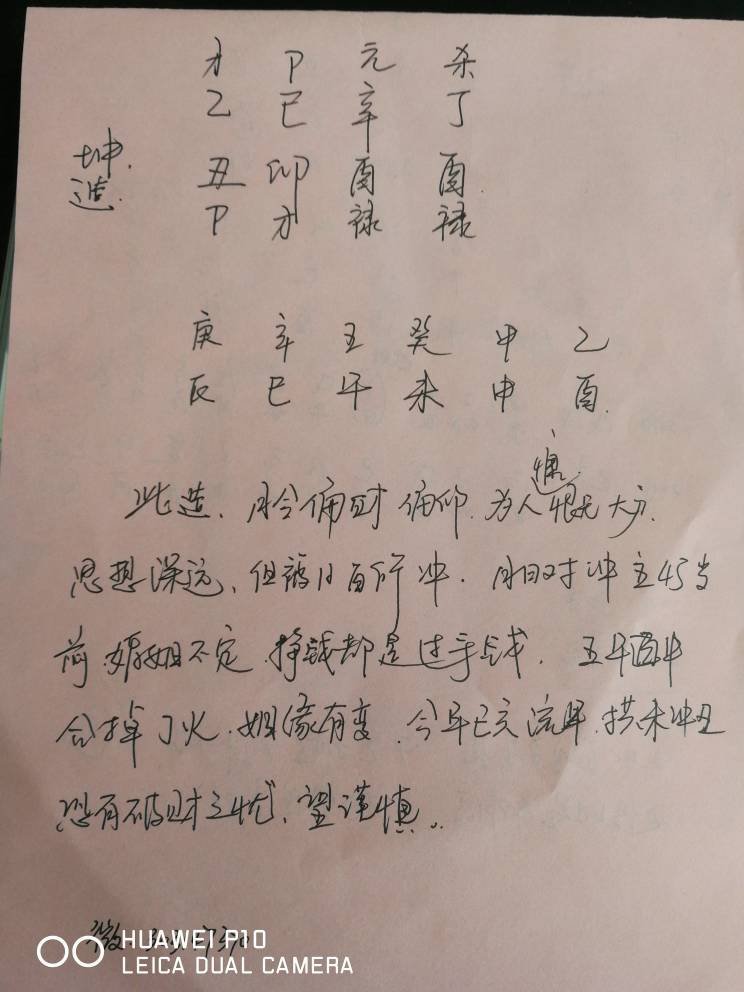 才 P 元 杀
乙 己 辛 丁
坤造
丑 卯 酉 酉
P 才 禄 禄
庚 辛 壬 癸 甲 乙
辰 巳 午 未 申 酉
此造、月令偏财偏印、为人慷慨大方、
思想深远、但被日酉所冲、月日对冲主45岁
前婚姻不定、挣钱都是过手钱、壬午酉中
合掉丁火、姻缘有变、今年已亥流年、拱未冲丑
恐有破财之忧、望谨慎。
HUAWEI P10
LEICA DUAL CAMERA